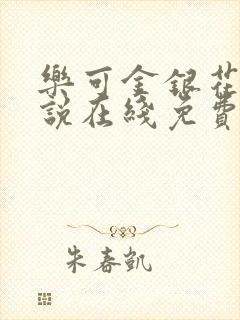 樂可金銀花
說在綫免費
朱春凱